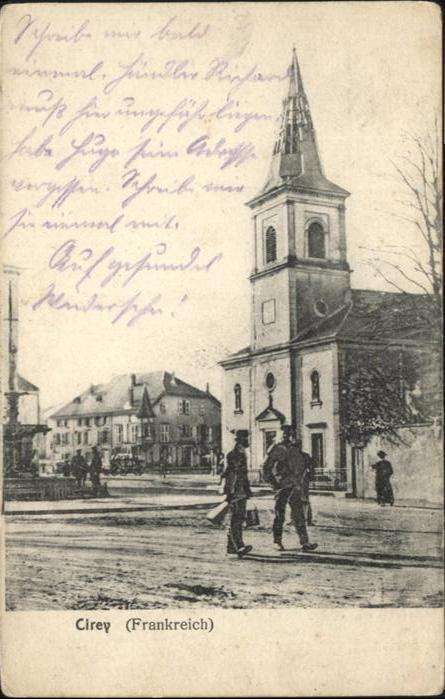 Schreibe mir bald
einmal. Händler Richard
muß hier ungefähr liegen
habe Hugo sein Adresse
vergessen. Schreibe mir
sie einmal mit.
Auf gesundes
Wiedersehn!
Cirey (Frankreich)